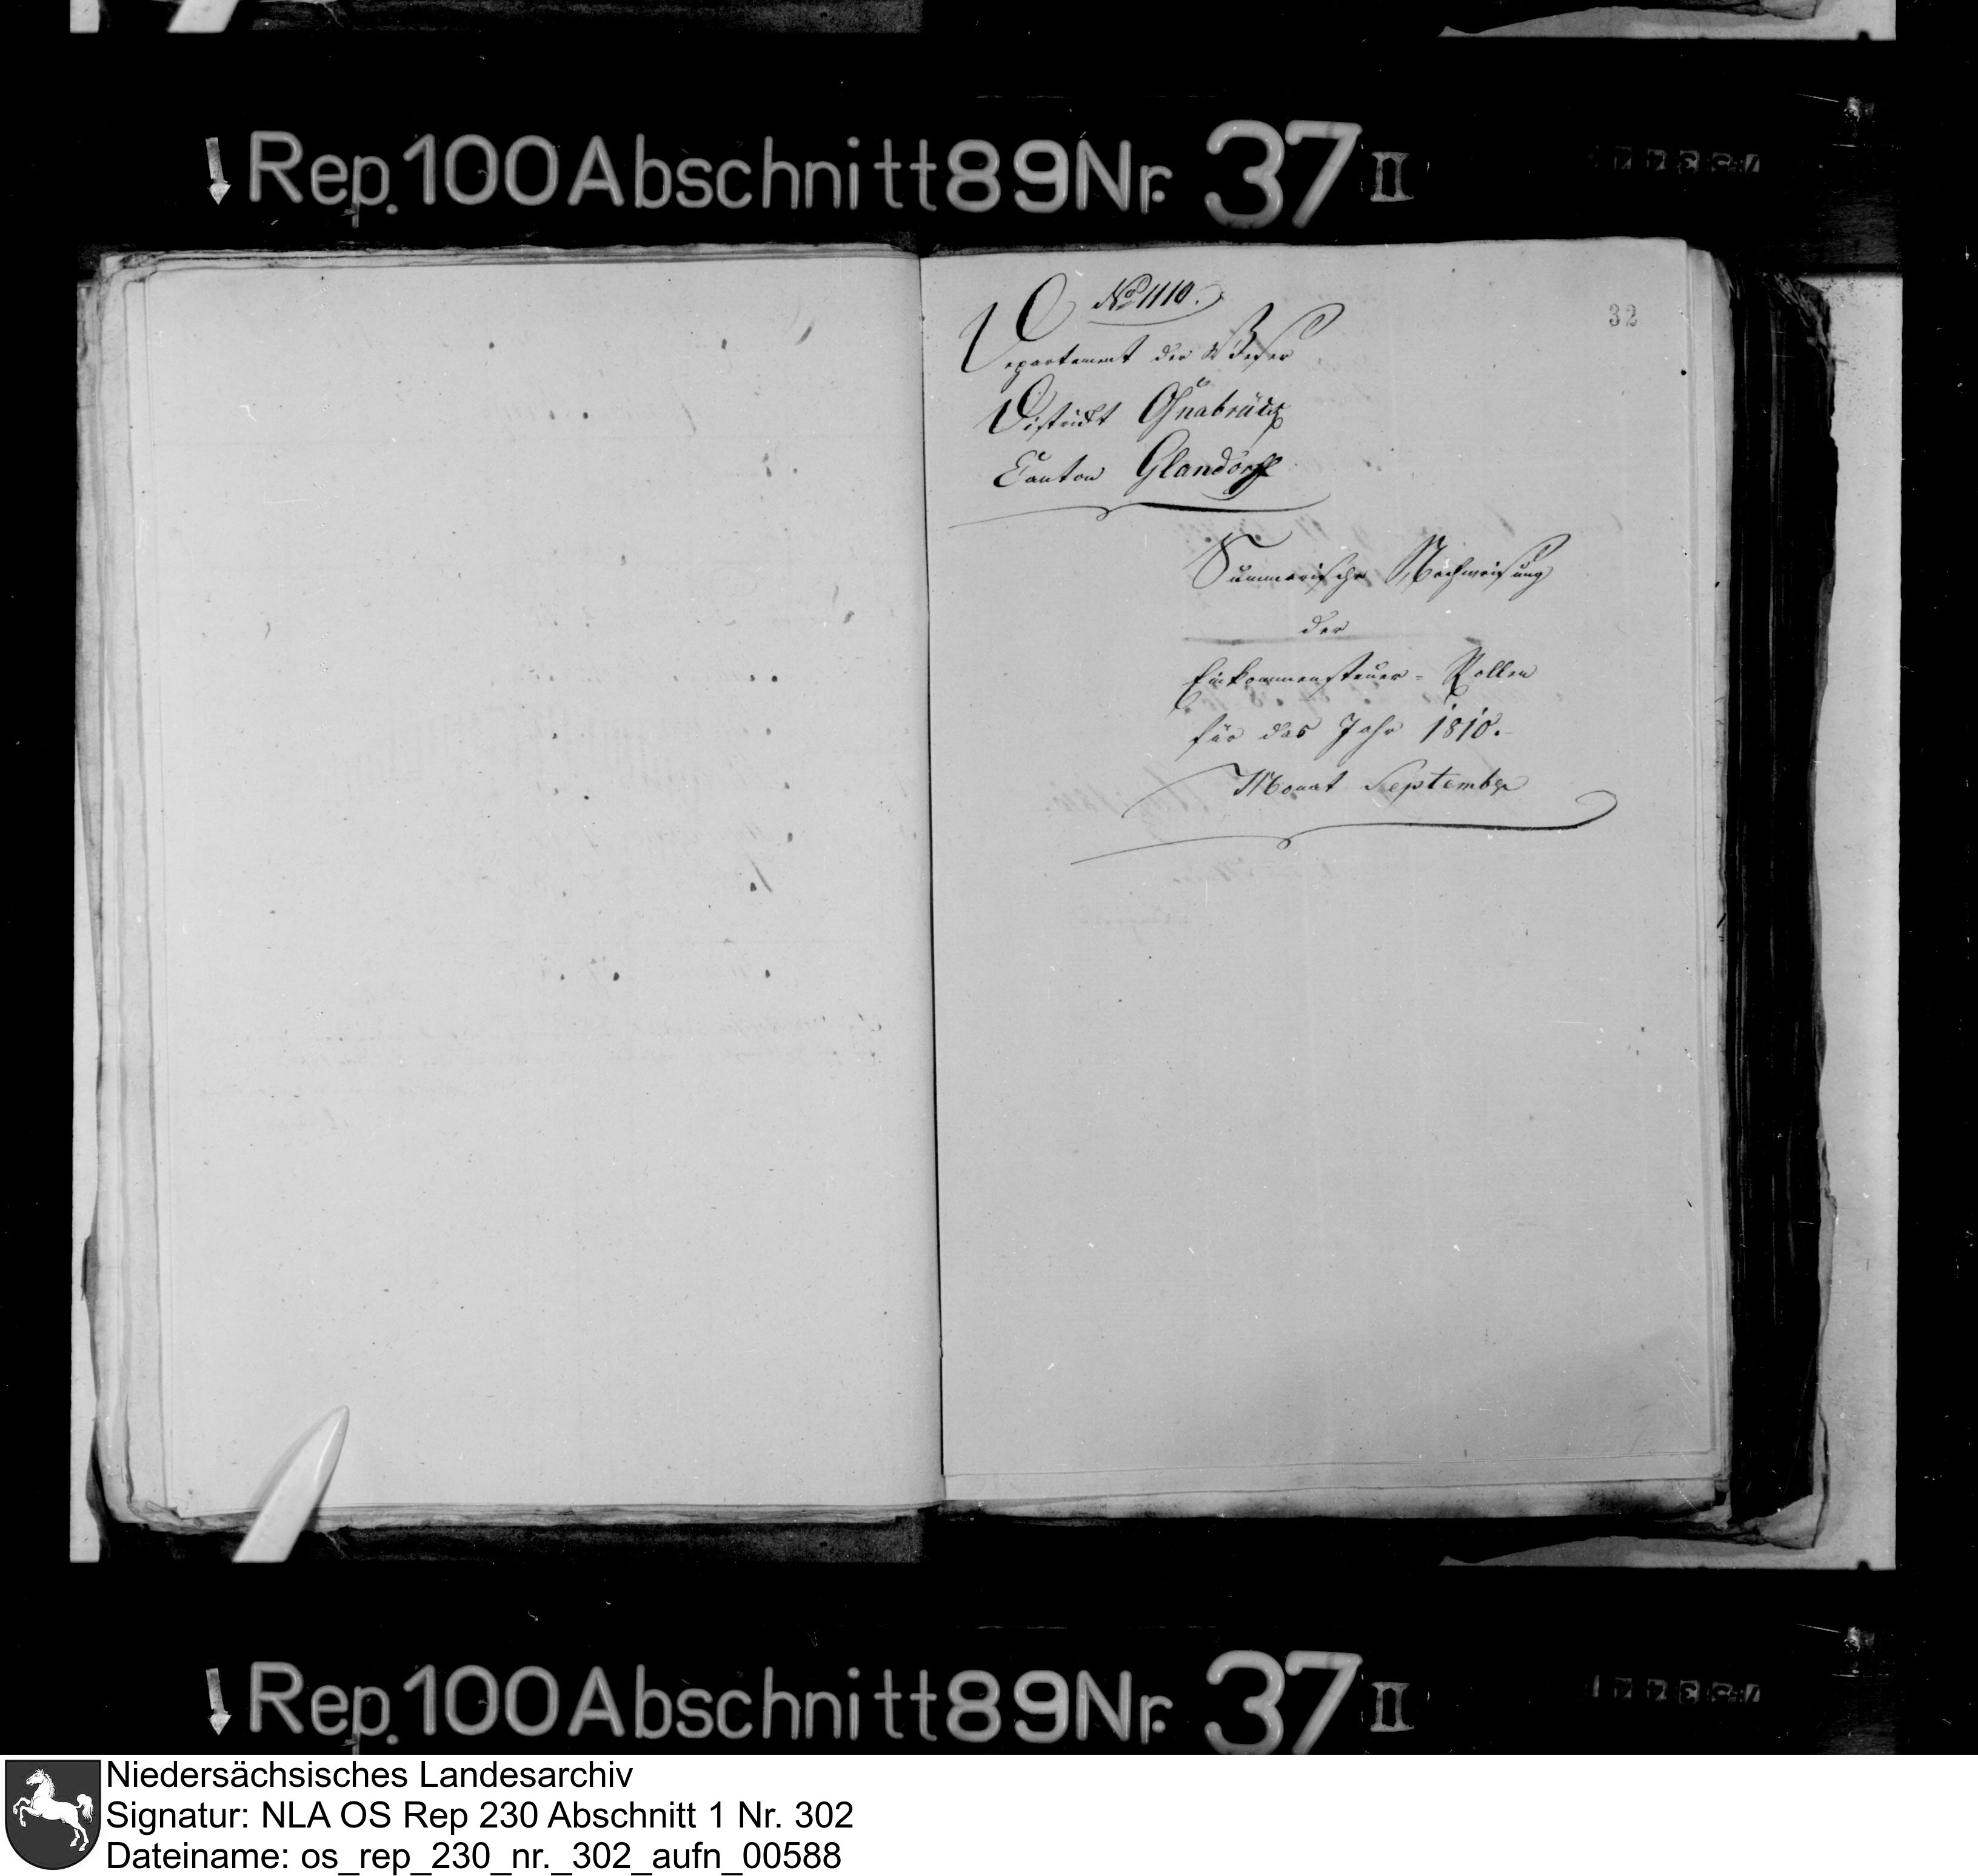 Rep. 100 Abschnitt 89 Nr. 37 II
No 1110.
32
Departement der Weser
District Osnabrück
Canton Glandorf
Summarische Nachweisung
der
Einkommensteuer-Rollen
für das Jahr 1810.
Monat September
Rep. 100 Abschnitt 89 Nr. 37 II
Niedersächsisches Landesarchiv
Signatur: NLA OS Rep 230 Abschnitt 1 Nr. 302
Dateiname: os_rep_230_nr._302_aufn_00588